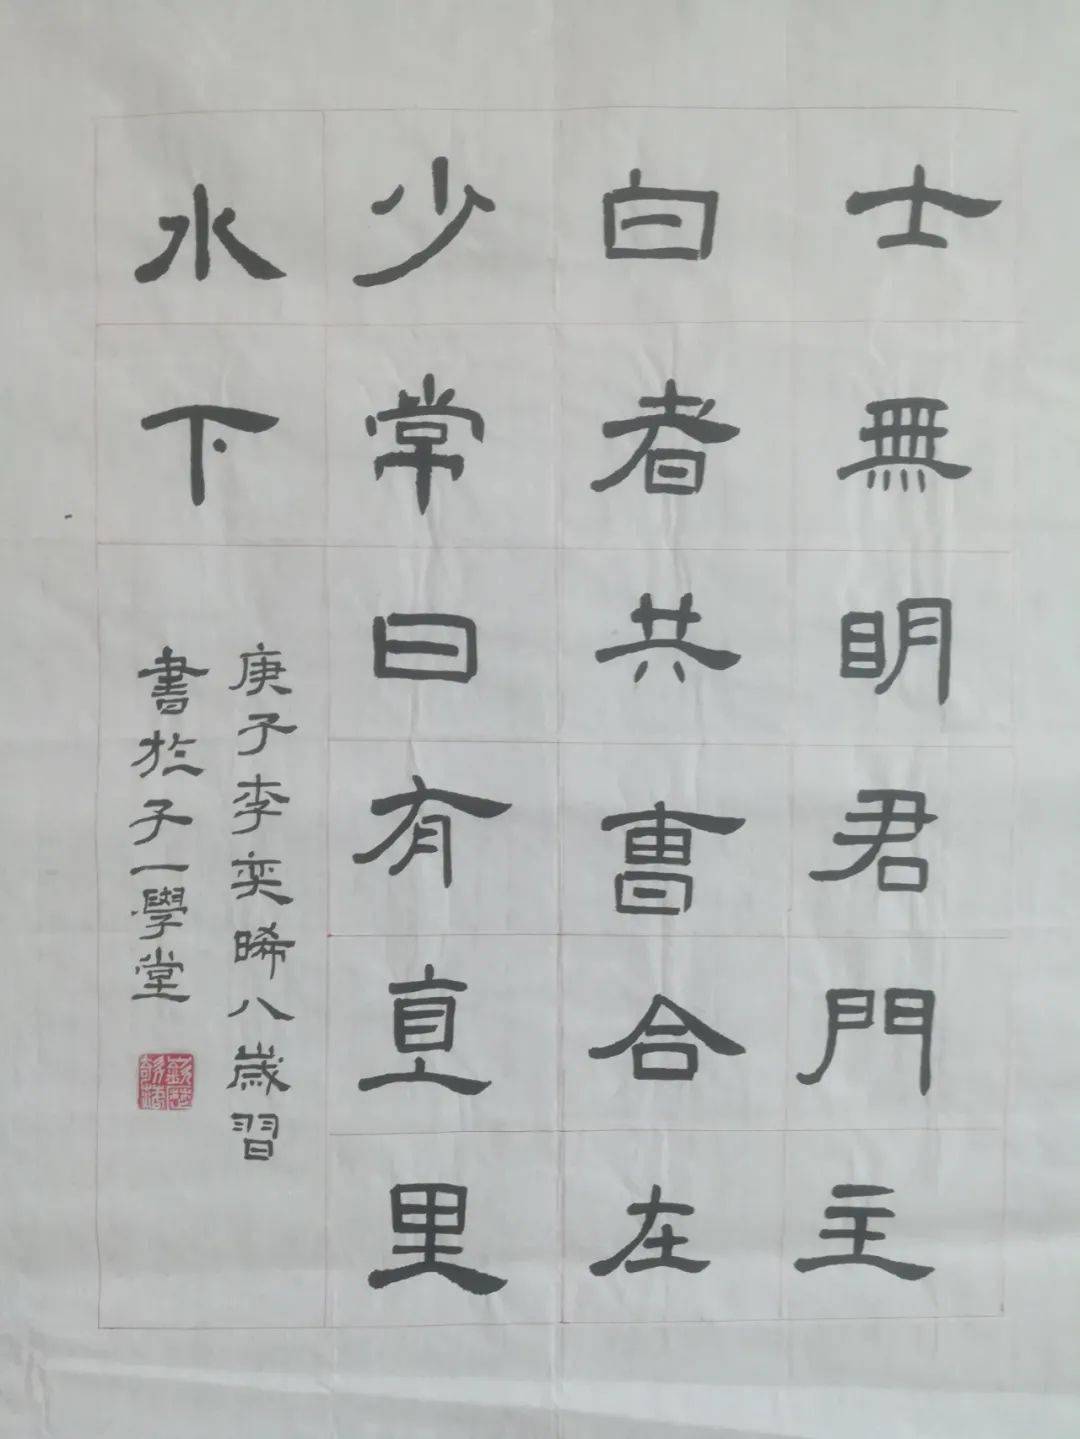 士無明君門主
白者共曹合在
少常曰有直里
水下
庚子李奕晞八歲習
書於子一學堂